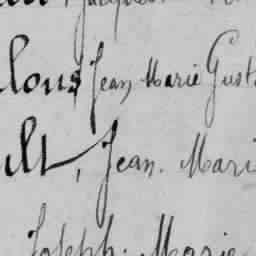 lous, Jean Marie Gust
ult, Jean. Mari
Joseph. Marie